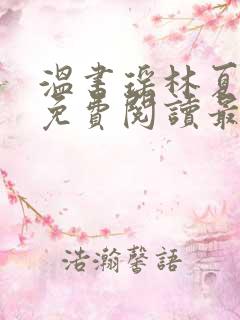 溫書瑤林夏
免費閱讀最
浩瀚馨語